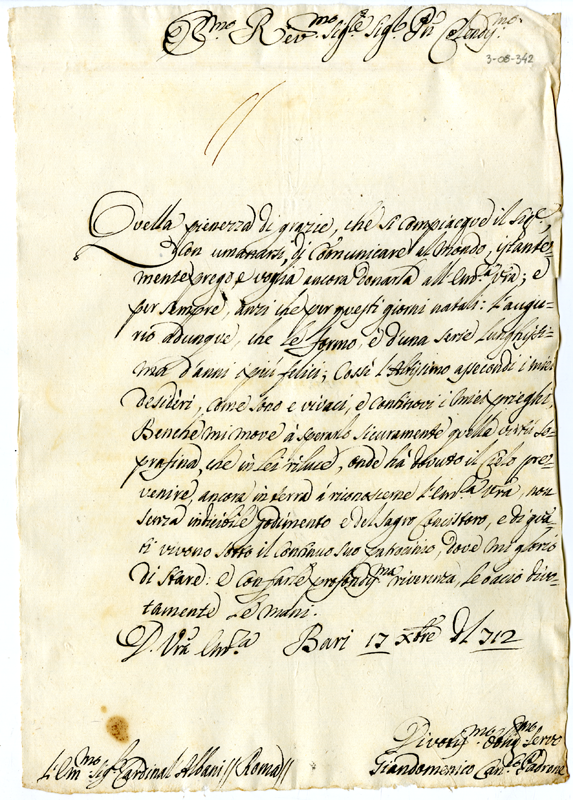 Em.mo Rev.mo Sig.re Sig.r P.n Col.endiss.mo
3-08-342
Quella pienezza di grazie, che si compiacque il Sig.re
con umanarsi, di comunicare al Mondo, istante-
mente prego è voglia ancora donarla all'Em.za V'ra; e
per sempre, anzi che per questi giorni natali: l'augu-
rio adunque, che le formo, è d'una serie lunghissi-
ma d'anni i più felici; Cossì l'Altissimo assecondi i miei
desidèri, come sono e vivaci, è continovi i miei prieghi
Benche mi move à sperarlo sicuramente quella virtù so-
prafina, che in lei riluce, onde hà dovuto il Cielo pre-
venire, ancora in terra à riconoscerne l'Em.za V'ra, non
senza indicibile godimento e del Sagro Concistoro, e di quā-
ti vivono sotto il continuo suo Patrocinio, dove mi glorio
di stare: e con farle profondiss.ma riverenza, le bacio divo-
tamente le mani.
D. V'ra Em.za Bari 17 Xbre del 712
Divotiss.mo Oblig.mo Servo
L'Em.mo Sig.r Cardinal Albani // Roma //
Giandomenico Can.co Padrone